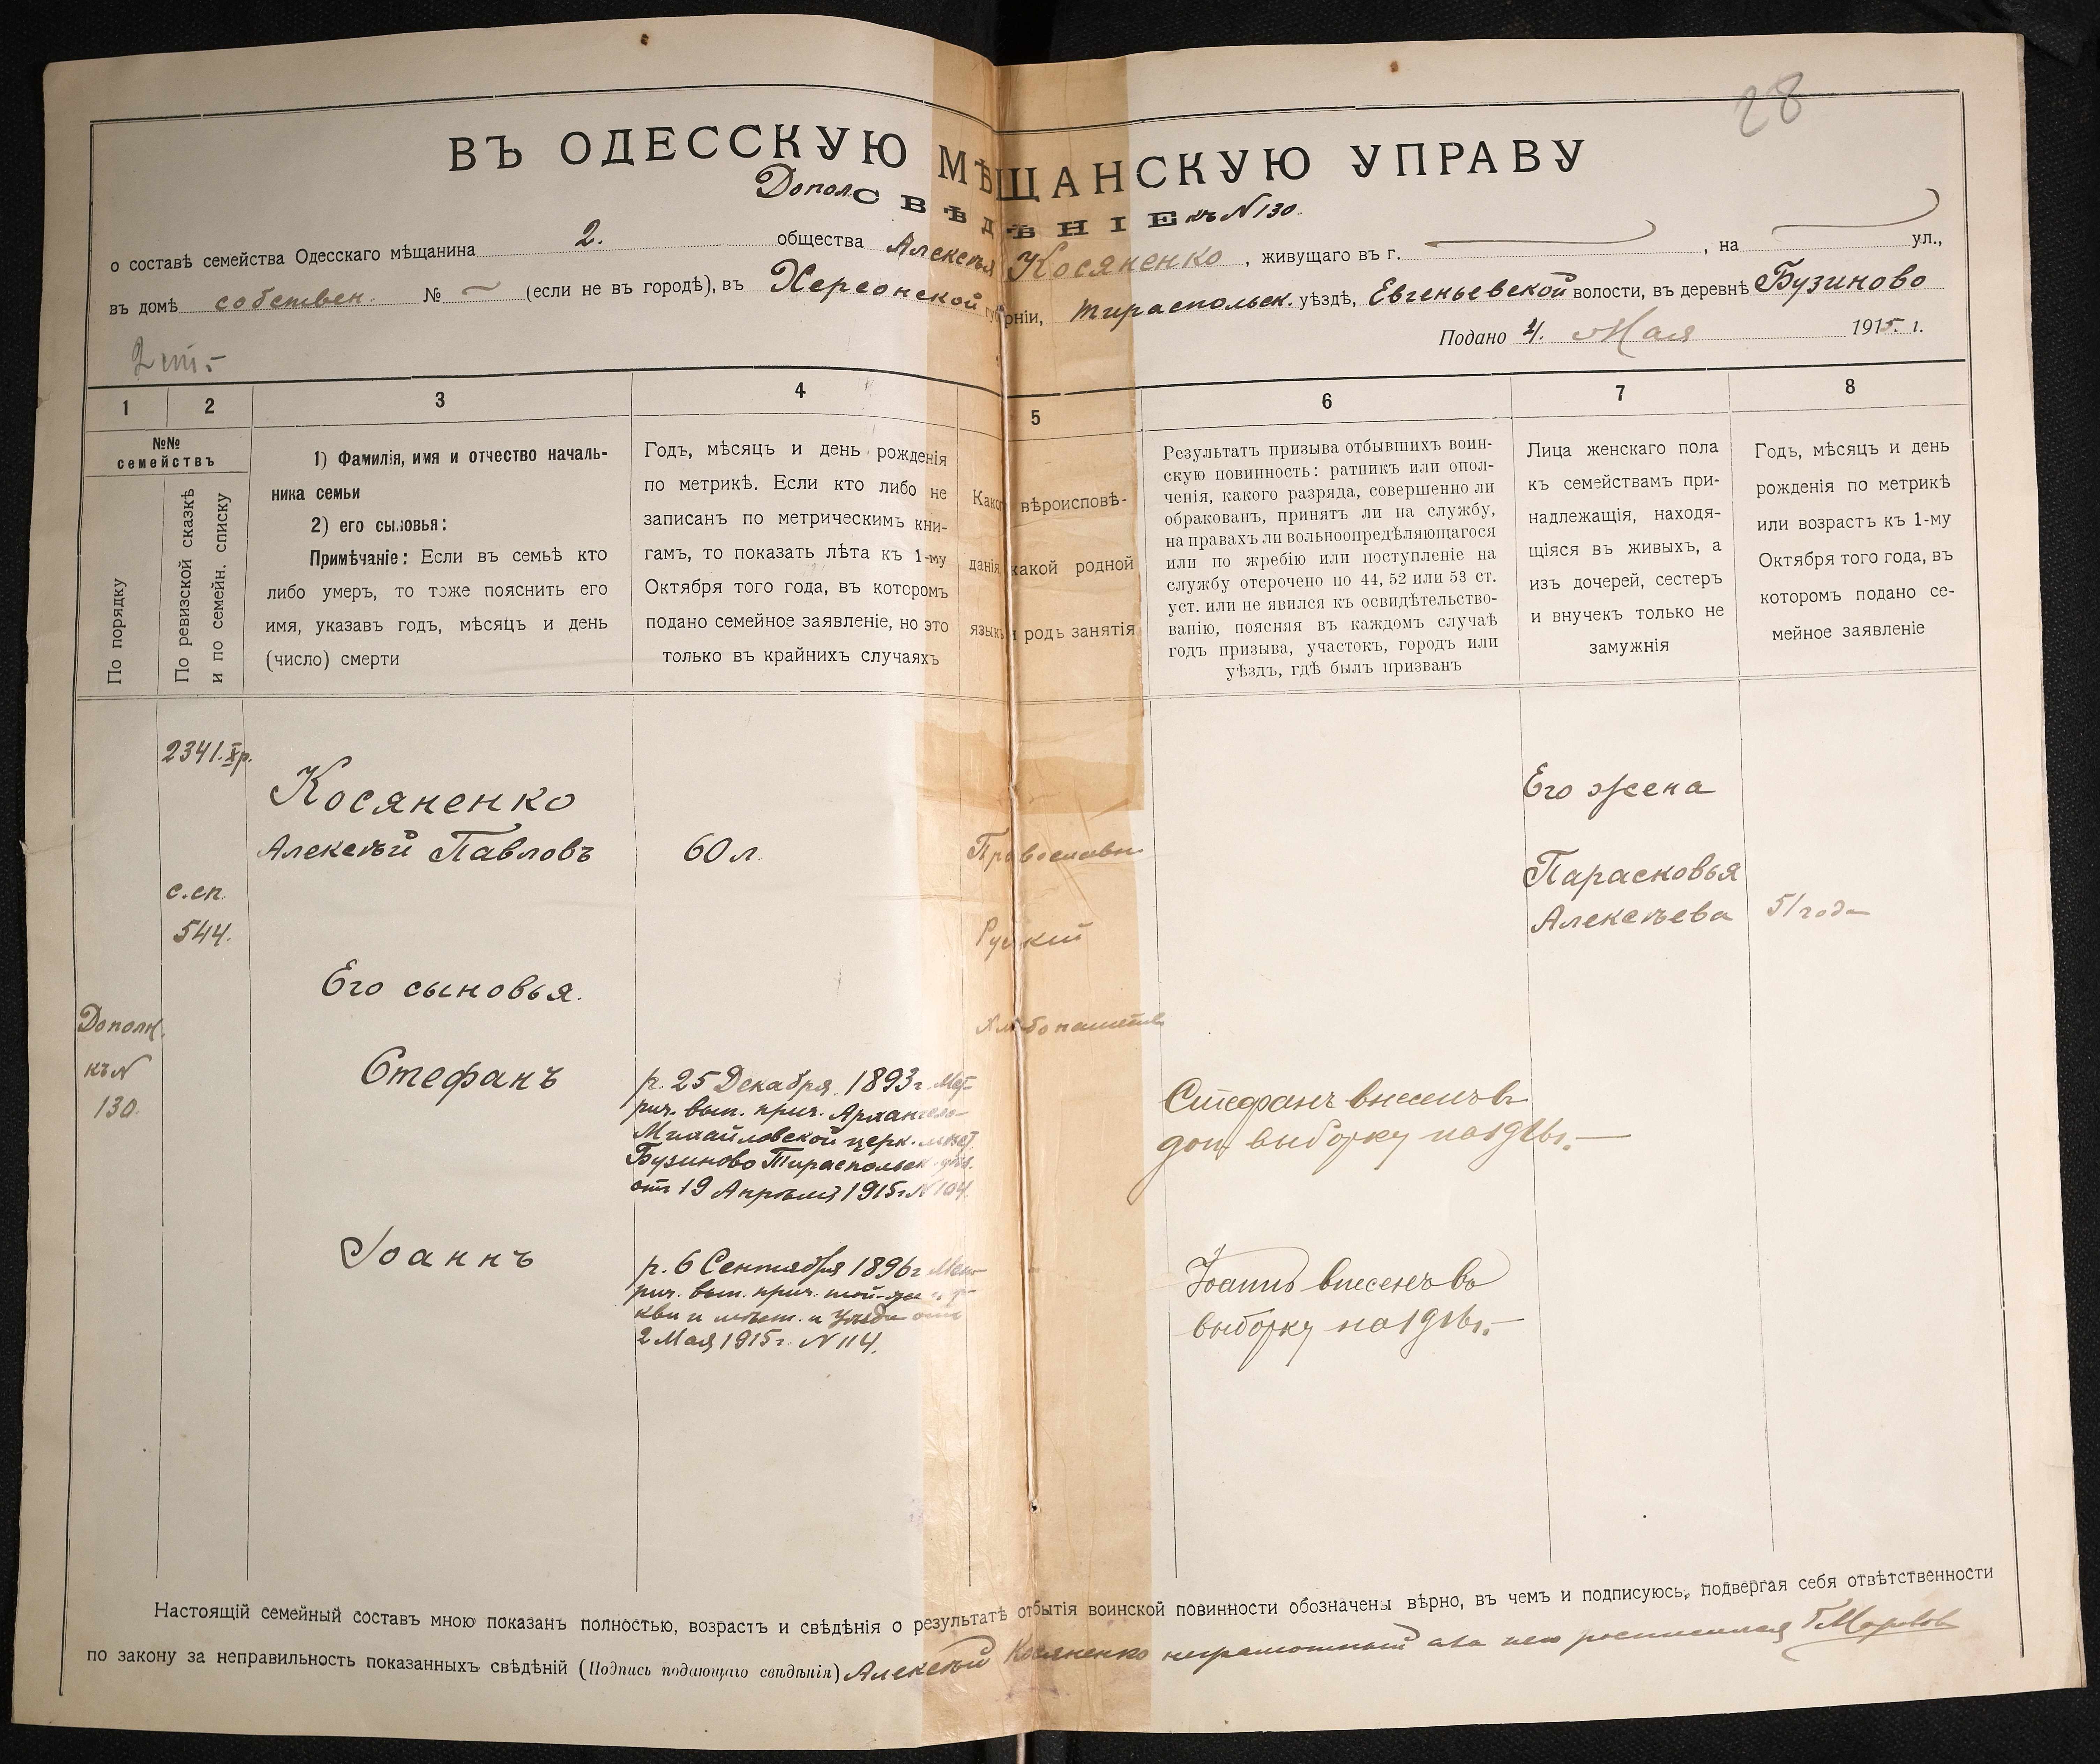 28
ВЪ ОДЕССКУЮ МѢЩАНСКУЮ УПРАВУ
Допол. СВѢДѢНІЕ къ N 130.
о составѣ семейства Одесскаго мѣщанина 2. общества Алексѣя Косяненко, живущаго въ г. , на ул.,
въ домѣ собствен. № (если не въ городѣ), въ Херсонской губерніи, Тираспольск. уѣздѣ, Евгеньевской волости, въ деревнѣ Бузиново
Подано 4. Мая 1915. г.
1
2
3
4
5
6
7
8
№№
семействъ
По порядку
По ревизской сказкѣ
и по семейн. списку
1) Фамилія, имя и отчество началь-
ника семьи
2) его сыновья:
Примѣчаніе: Если въ семьѣ кто
либо умеръ, то тоже пояснить его
имя, указавъ годъ, мѣсяцъ и день
(число) смерти
Годъ, мѣсяцъ и день рожденія
по метрикѣ. Если кто либо не
записанъ по метрическимъ кни-
гамъ, то показать лѣта къ 1-му
Октября того года, въ которомъ
подано семейное заявленіе, но это
только въ крайнихъ случаяхъ
Какого вѣроисповѣ-
данія, какой родной
языкъ и родъ занятія
Результатъ призыва отбывшихъ воин-
скую повинность: ратникъ или опол-
ченія, какого разряда, совершенно ли
обракованъ, принятъ ли на службу,
на правахъ ли вольноопредѣляющагося
или по жребію или поступленіе на
службу отсрочено по 44, 52 или 53 ст.
уст. или не явился къ освидѣтельство-
ванію, поясняя въ каждомъ случаѣ
годъ призыва, участокъ, городъ или
уѣздъ, гдѣ былъ призванъ
Лица женскаго пола
къ семействамъ при-
надлежащія, находя-
щіяся въ живыхъ, а
изъ дочерей, сестеръ
и внучекъ только не
замужнія
Годъ, мѣсяцъ и день
рожденія по метрикѣ
или возрастъ къ 1-му
Октября того года, въ
которомъ подано се-
мейное заявленіе
2341. Хр.
Косяненко
Алексѣй Павловъ
60 л.
Православн
Его жена
Парасковья
Алексѣева
51 годъ
с. сп.
544.
Русскій
Его сыновья.
Дополн.
къ N
130.
Хлѣбопашество
Стефанъ
р. 25 Декабря 1893 г. Мет-
рич. вып. прич. Архангело-
Михайловской церк. мѣст.
Бузиново Тираспольск. уѣз.
отъ 19 Апрѣля 1915 г. N 104.
Стефанъ внесенъ въ
доп. выборку на 1916 г.
Іоаннъ
р. 6 Сентября 1896 г. Мет-
рич. вып. прич. той-же цер-
кви и мѣст. и уѣзда отъ
2 Мая 1915 г. N 114.
Іоаннъ внесенъ въ
выборку на 1916 г.
Настоящій семейный составъ мною показанъ полностью, возрастъ и свѣдѣнія о результатѣ отбытія воинской повинности обозначены вѣрно, въ чемъ и подписуюсь, подвергая себя отвѣтственности
по закону за неправильность показанныхъ свѣдѣній (Подпись подающаго свѣдѣнія) Алексѣй Косяненко неграмотный а за него росписался